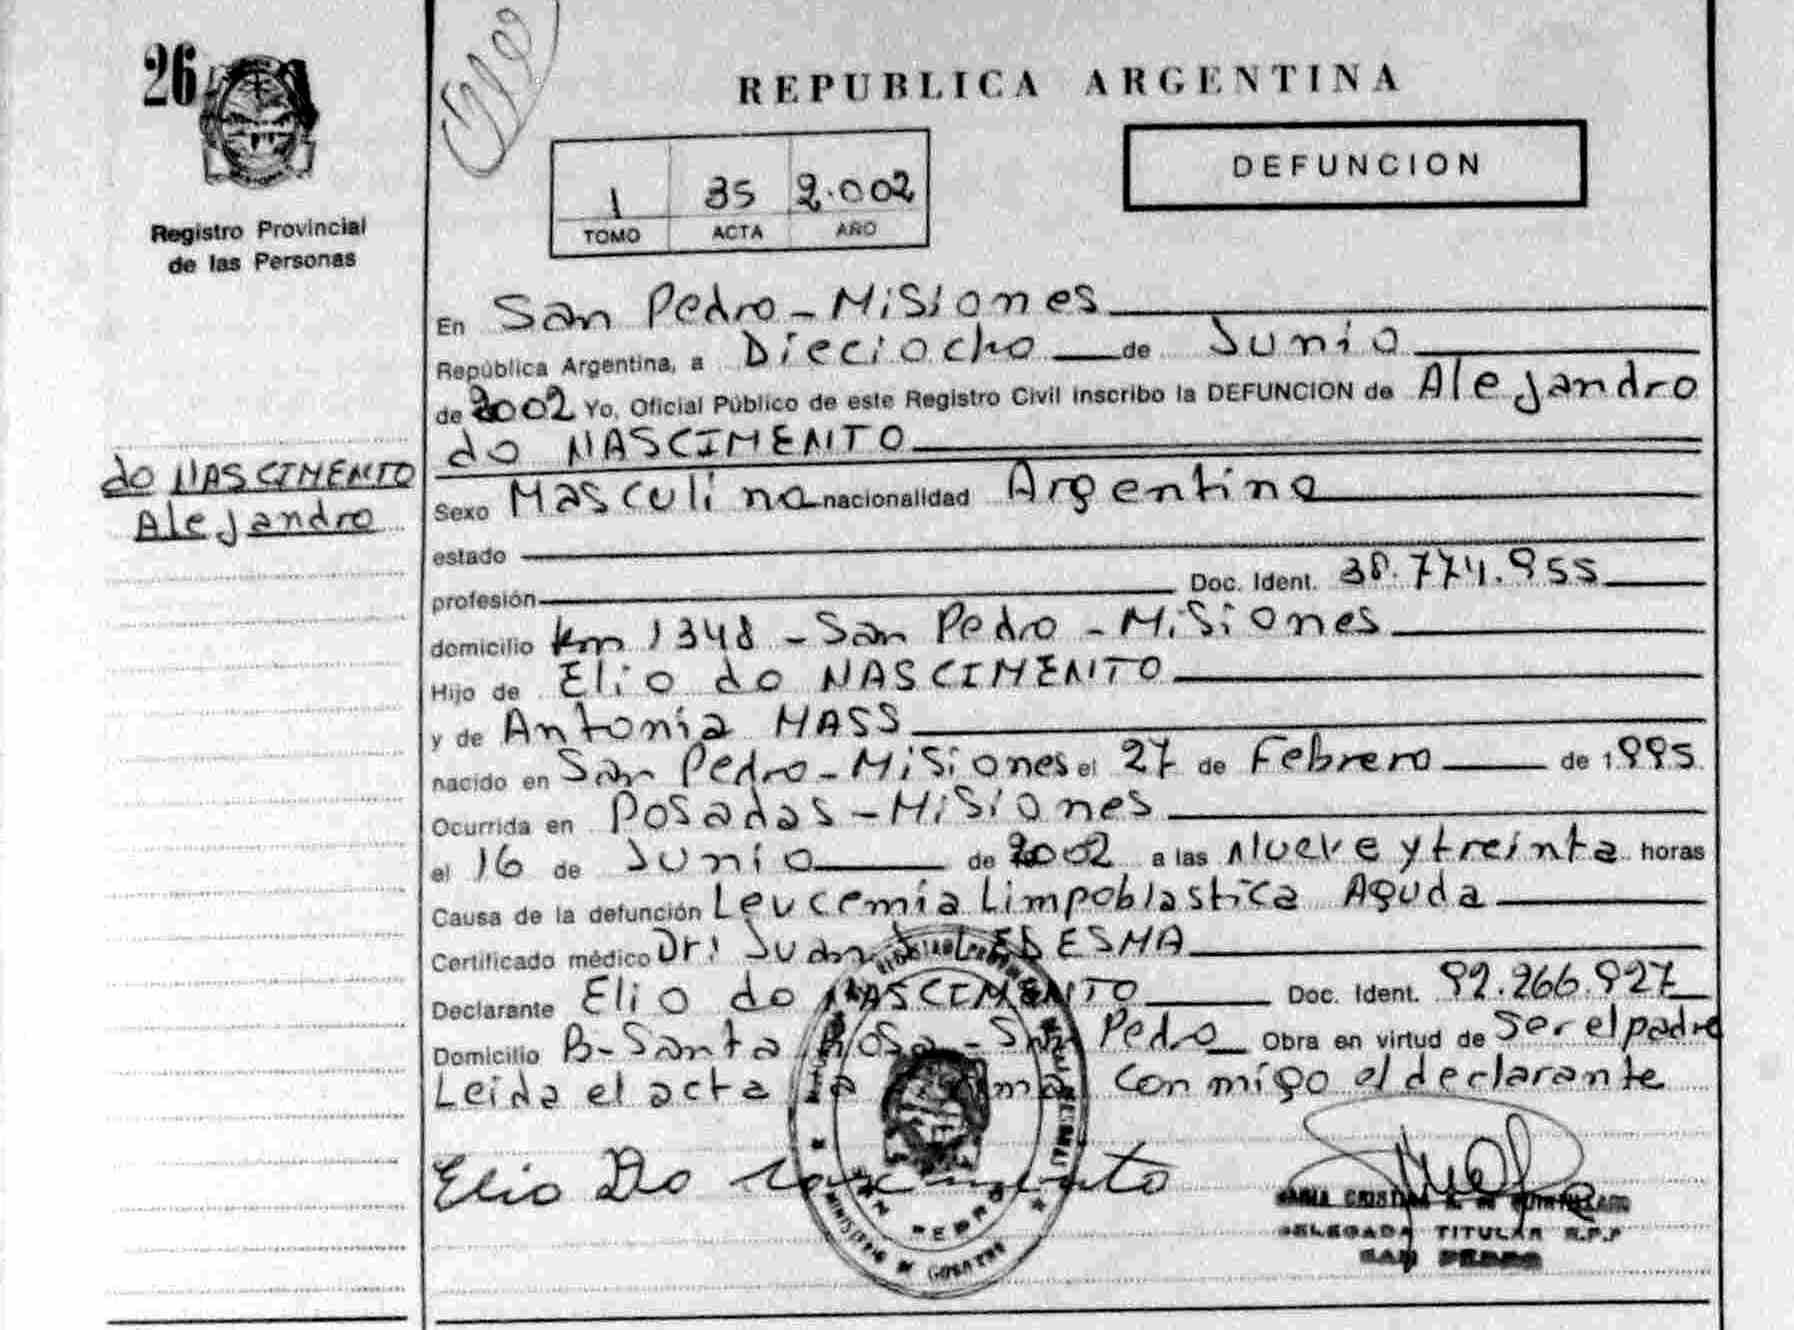 26
Registro Provincial
de las Personas
REPUBLICA ARGENTINA
DEFUNCION
1 35 2.002
TOMO ACTA AÑO
En San Pedro - Misiones
República Argentina, a Dieciocho de Junio
de 2002 Yo, Oficial Público de este Registro Civil inscribo la DEFUNCION de Alejandro
do NASCIMENTO
do NASCIMENTO
Alejandro
Sexo Masculino nacionalidad Argentino
estado
profesión Doc. Ident. 38.774.955
domicilio km 1348 - San Pedro - Misiones
Hijo de Elio do NASCIMENTO
y de Antonia MASS
nacido en San Pedro - Misiones el 27 de Febrero de 1995
Ocurrida en Posadas - Misiones
el 16 de Junio de 2002 a las Nueve y treinta horas
Causa de la defunción Leucemia Limpoblastica Aguda
Certificado médico Dr: Juan LEDESMA
Declarante Elio do NASCIMENTO Doc. Ident. 92.266.927
Domicilio B-Santa Rosa - San Pedro Obra en virtud de Ser el padre
Leida el acta la conmigo el declarante
Elio Do Nascimento
MARIA CRISTINA
DELEGADA TITULAR R.P.P
SAN PEDRO
SAN PEDRO
MINISTERIO DE GOBIERNO